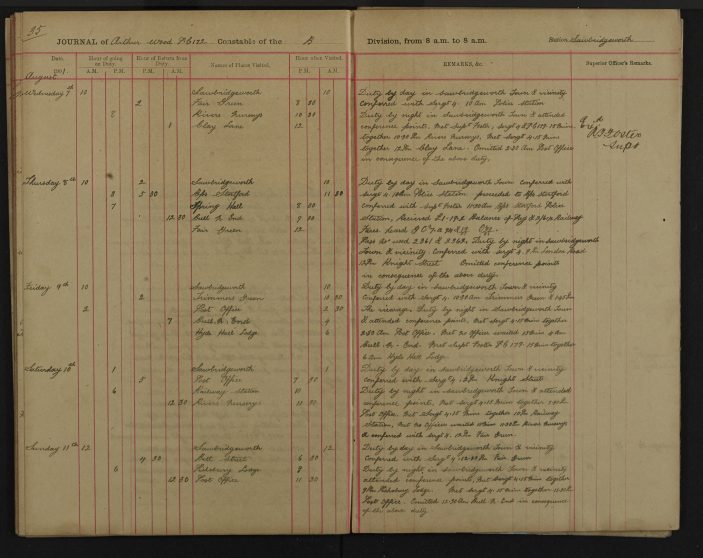 35
JOURNAL of Arthur Wood PC 172 Constable of the B Division, from 8 a.m. to 8 a.m. Station Sawbridgeworth
Date. Hour of going on Duty. Hour of Return from Duty. Names of Places Visited. Hour when Visited. REMARKS, &c. Superior Officer's Remarks.
A.M. P.M. A.M. P.M. A.M. P.M.
August
1901
Wednesday 7th 10 Sawbridgeworth 10 Duty by day in Sawbridgeworth Town & vicinity
2 Fair Green 8 30 Conferred with Sergt 4. 10 am Police Station
8 Rivers Nurserys 10 30 Duty by night in Sawbridgeworth Town & attended
1 Clay Lane 12 conference points. Met Supt Foster, Sergt 4 & PC 177 15 Mins
together 10.30 Pm Rivers Nurserys. Met Sergt 4. 15 Mins
together 12 Pm Clay Lane. Omitted 2.30 Am Post Office
in consequence of the above duty.
Supt
Thursday 8th 10 2 Sawbridgeworth 10 Duty by day in Sawbridgeworth Town Conferred with
8 5 30 B/s Stortford 11 30 Sergt 4. 10 Am Police Station proceeded to B/s Stortford
7 Spring Hall 8 30 conferred with Supt Foster 11.30 Am B/s Stortford Police
12 30 Bull N. End 9 30 Station, Received Balance of Pay & Railway
Fair Green 12
Duty by night in Sawbridgeworth
Town & vicinity Conferred with Sergt 4. 9 Pm London Road
12 Pm Knight Street Omitted conference points
in consequence of the above duty.
Friday 9th 10 Sawbridgeworth 10 Duty by day in Sawbridgeworth Town & vicinity
2 Trimmers Green 10 30 Conferred with Sergt 4. 10.30 Am Trimmers Green
2 Post Office 2 30 The vicarage. Duty by night in Sawbridgeworth Town
7 Bull N. End 4 & attended conference points. Met Sergt 4. 15 Mins together
Hyde Hall Lodge 6 2.30 am Post Office. Met no Officer waited 15 Mins 4 am
Bull N. End. Met Supt Foster PC 177. 15 Mins together
6 am Hyde Hall Lodge.
Saturday 10th 1 Sawbridgeworth 1 Duty by day in Sawbridgeworth Town & vicinity
5 Post Office 7 30 conferred with Sergt 4 Knight Street
6 Railway Station 10 Duty by night in Sawbridgeworth Town & attended
12 30 Rivers Nurserys 11 30 conference points. Met Sergt 4. 15 Mins together 7.30 Pm
Post Office. Met Sergt 4. 15 Mins together 10 Pm Railway
Station, Met no Officer waited 10 Mins 11.30 Pm Rivers Nurserys
& conferred with Sergt 4. 12 Pm Fair Green.
Sunday 11th 12 Sawbridgeworth 12 Duty by day in Sawbridgeworth Town & vicinity
4 30 Bell Street 6 30 Conferred with Sergt 4 12.30 Pm Fair Green
6 Pishobury Lodge 9 Duty by night in Sawbridgeworth Town & vicinity
12 30 Post Office 11 30 attended conference points, Met Sergt 4. 15 Mins together
9 Pm Pishobury Lodge. Met Sergt 4. 15 Mins together 11.30 Pm
Post Office. Omitted Bull N. End in consequence
of the above duty